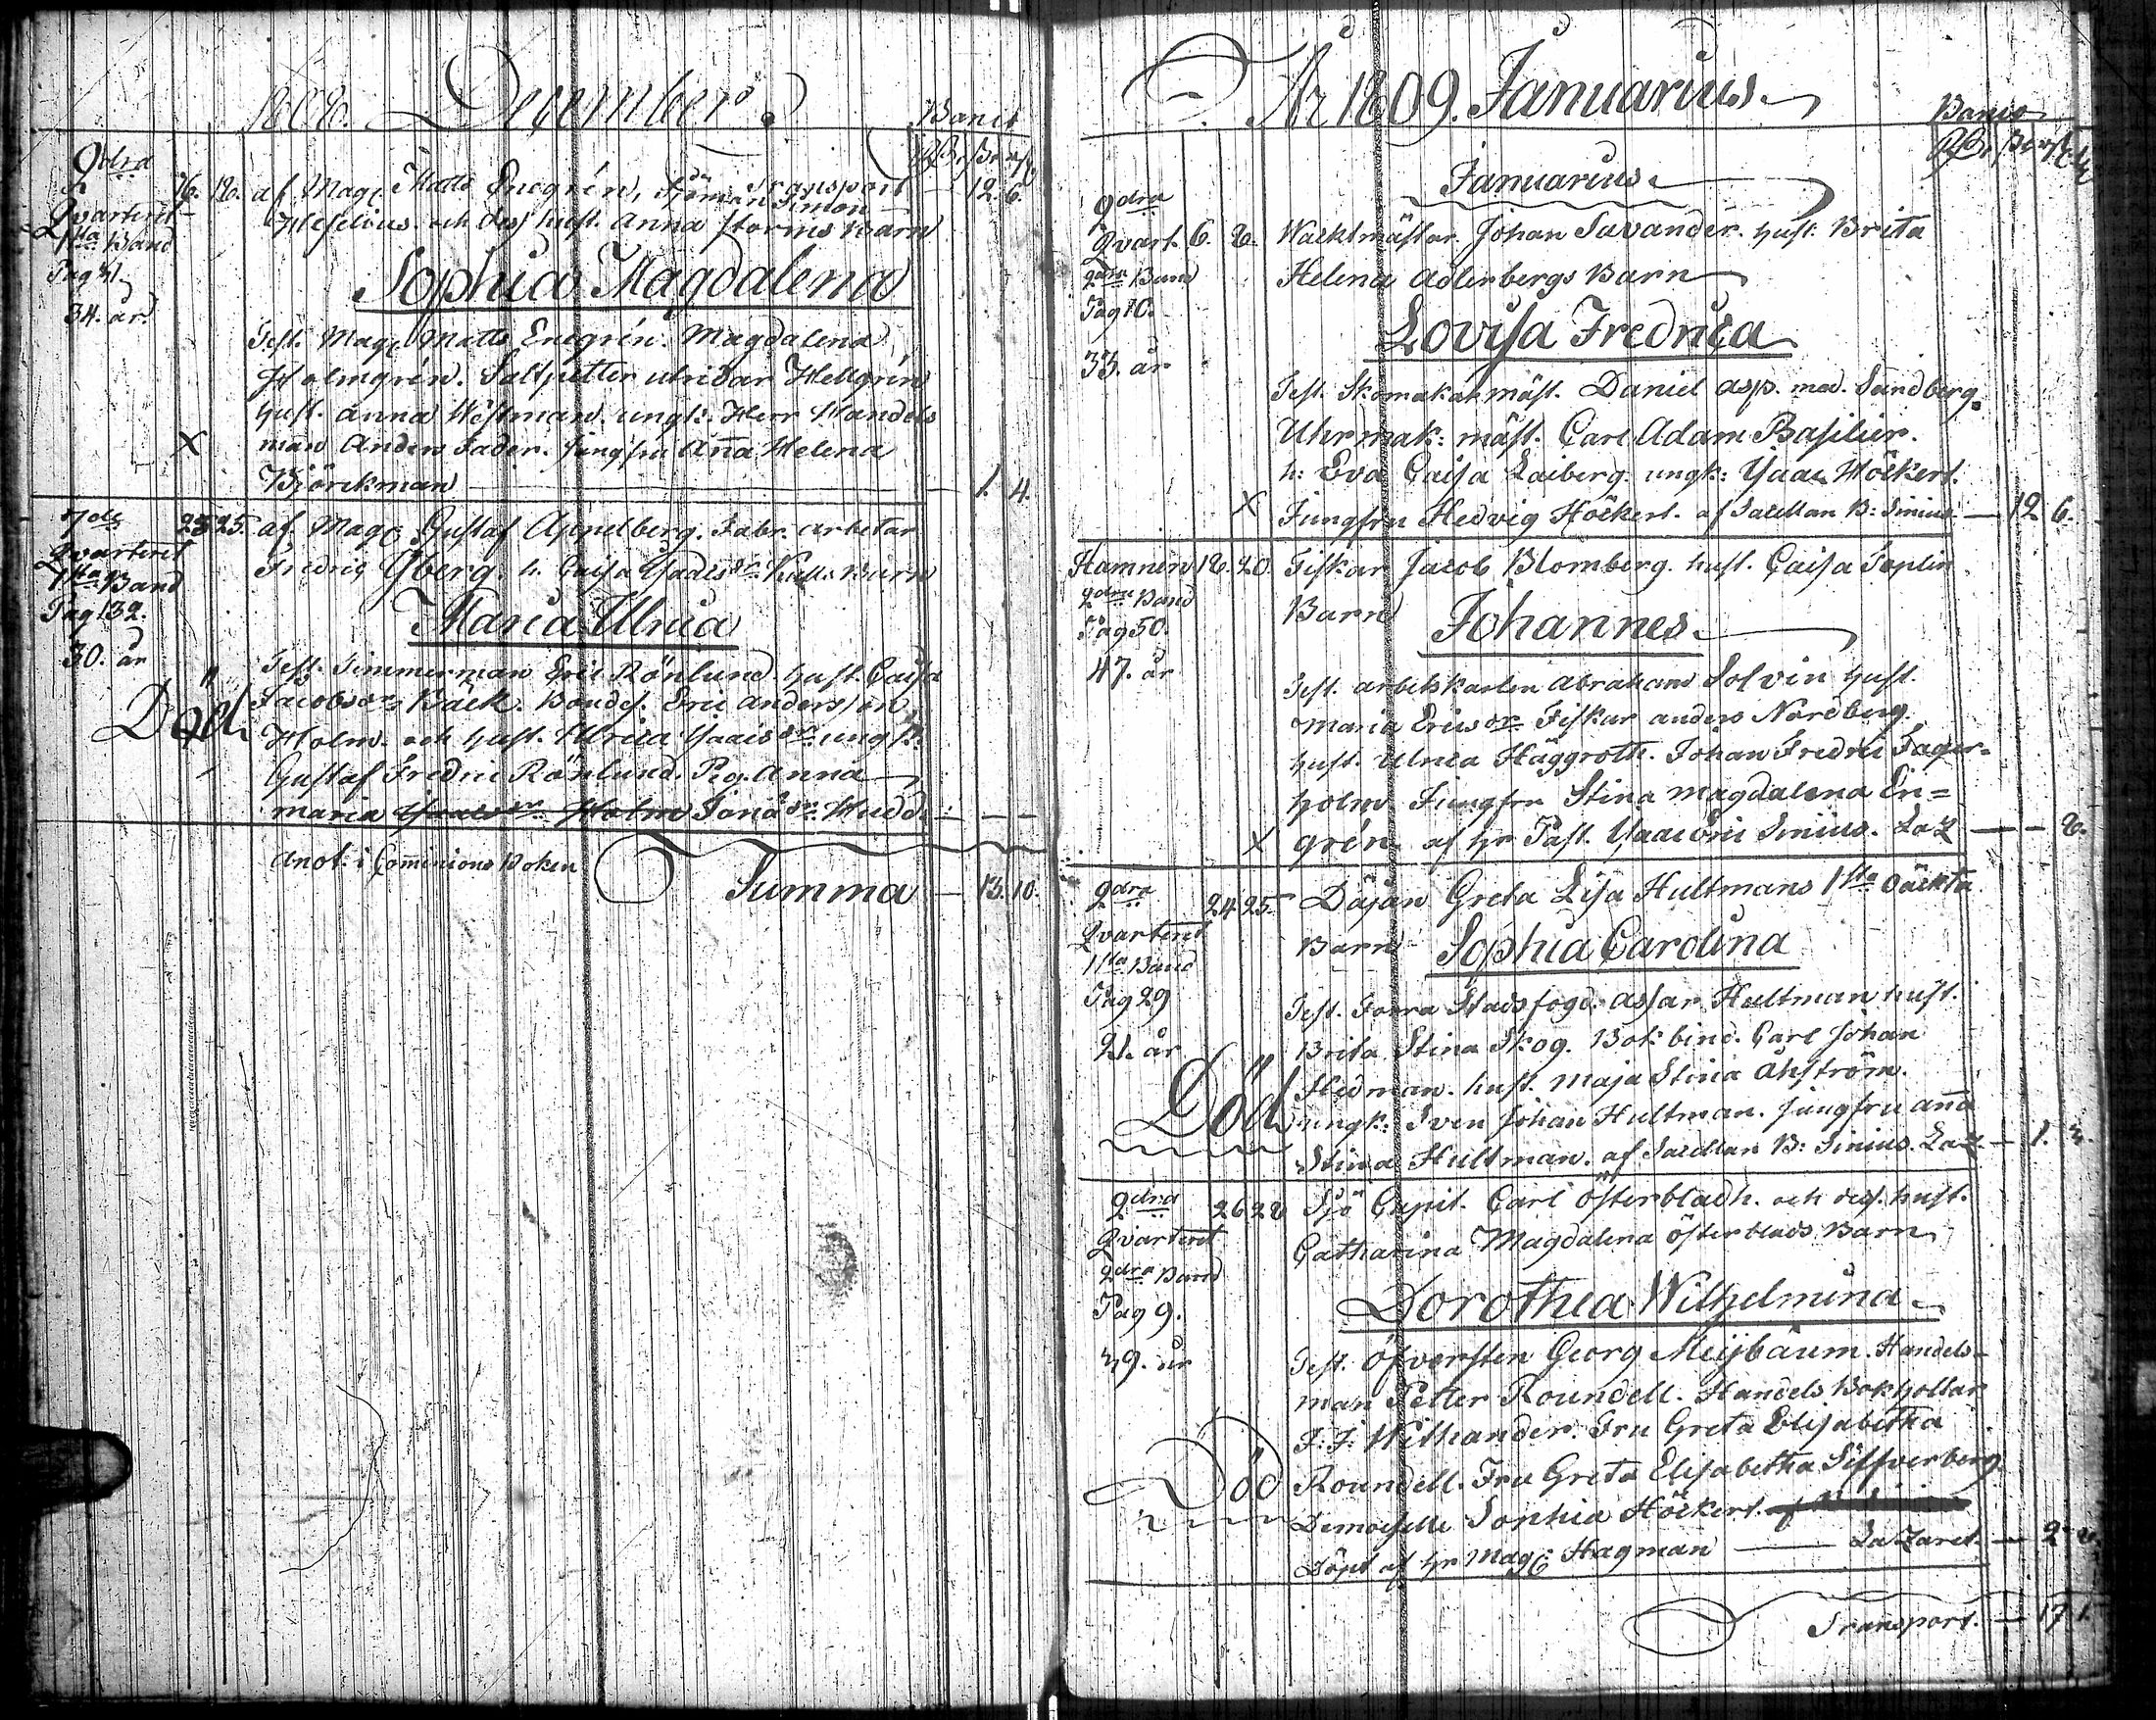 1808. December.
Banco
2dra
Qvarteret
1sta Band
Pag 41
34. år.
16. 18. af Mag. Matts Enegrén, Transport — 12. 6.
Sjöman Simon
Heselius och dess hust. Anna Storms Barn
Sophia Magdalena
Test. Mag. Matts Enegrén. Magdalena
Holmgrén. Saltpetter utridar Hellgrén
hust. Anna Westman. ungk. Herr Handels
X man Anders Fader. Jungfru Anna Helena
Björckman — 1. 4.
7de
Qvarteret
1sta Band
Pag 132.
30. år
23 25. af Mag. Gustaf Appelberg. Fabr. arbetar
Fredric Yberg. h. Caisa Barn
Maria Ulrica
Test. Timmerman Eric Rönlund hust. Caisa
Jacobsdr Bäck. Bondes. Eric Andersson
Död
Holm. och hust. Ulrica Isaacsdr ungk.
Gustaf Fredric Rönlund. Pig. Anna
Maria Holm
Anot. i Cominions Boken
Summa — 13. 10.
År 1809. Januarius
Banco
Januarius
2dra
Qvart.
2dra Band
Pag 10.
33. år
6. 8. Wacktmästar Johan Savander. hust. Brita
Helena Adlerbergs Barn
Lovisa Fredrica
Test. Skomakar mäst. Daniel Asp. mad. Sundberg.
Uhrmak: mäst. Carl Adam Basilier.
h: Eva Caisa Laiberg. ungk: Isaac Höckert.
X Jungfru Hedvig Höckert. af Sacellan B: Simius. — 12 6.
Hamnen
2dra Band
Pag 50.
47. år
18. 20. Fiskar Jacob Blomberg. hust. Caisa Toplin
Barn Johannes
Test. arbetskarlen Abraham Solvin hust.
Maria Ericsdr Fiskar Anders Nordberg.
hust. Ulrica Häggroth. Johan Fredric Fager=
holm. Jungfru Stina Magdalena En=
X grén af hr Past. Simius. Laz — — 8.
2dra
Qvarteret
1sta Band
Pag 29
21. år
24 25. Däjan Greta Lisa Hultmans 1sta oäckta
Barn Sophia Carolina
Test. Forra Stadsfogd. Assar Hultman hust.
Brita Stina Skog. Bokbind. Carl Johan
Död
Hedman. hust. Maja Stina Åhström.
ungk: Sven Johan Hultman. Jungfru Anna
Stina Hultman. af Sacellan B: Simius. Laz. — 1. 3.
2dra
Qvarteret
2dra Band
Pag 9.
39. år
26 28 Sjö Capit. Carl Österbladh. och dess hust.
Catharina Magdalena Österblads Barn
Dorothea Wilhelmina
Test. Öfversten Georg Meijbaum. Handels-
man Petter Roundell. Handels Bokhollar
J: J: Withander. Fru Greta Elisabetha
Död
Roundell. Fru Greta Elisabetha Silfverberg
Demoiselle Sophia Höckert.
Döpt af hr Mag. Hagman — LaZaret. — 2. 8.
Transport. — 17 1.